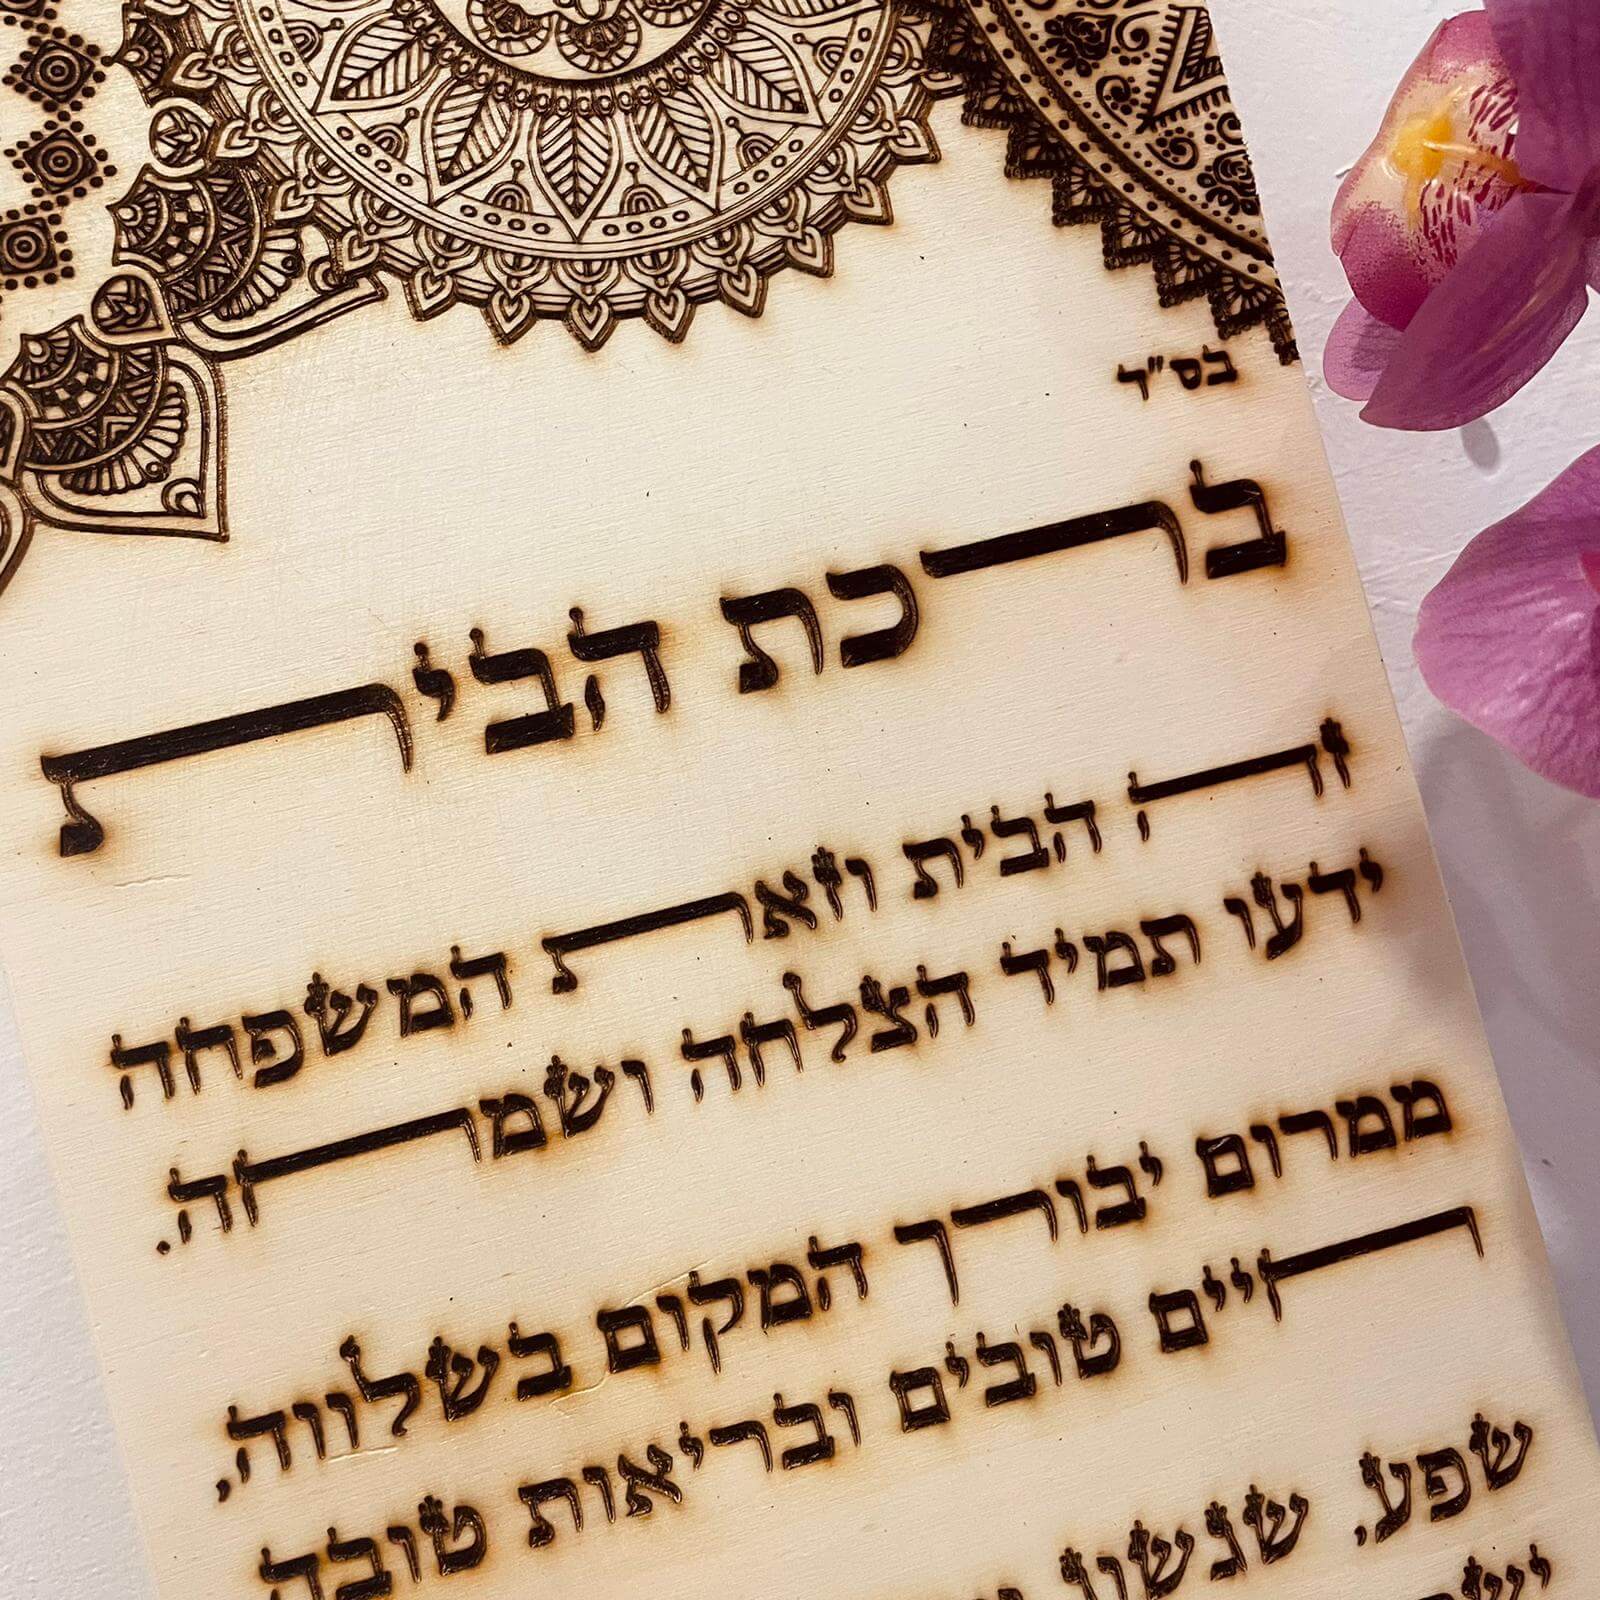 בס"ד
ברכת הבית
זה הבית וזאת המשפחה
ידעו תמיד הצלחה ושמחה.
ממרום יבורך המקום בשלווה,
חיים טובים ובריאות טובה
שפע,